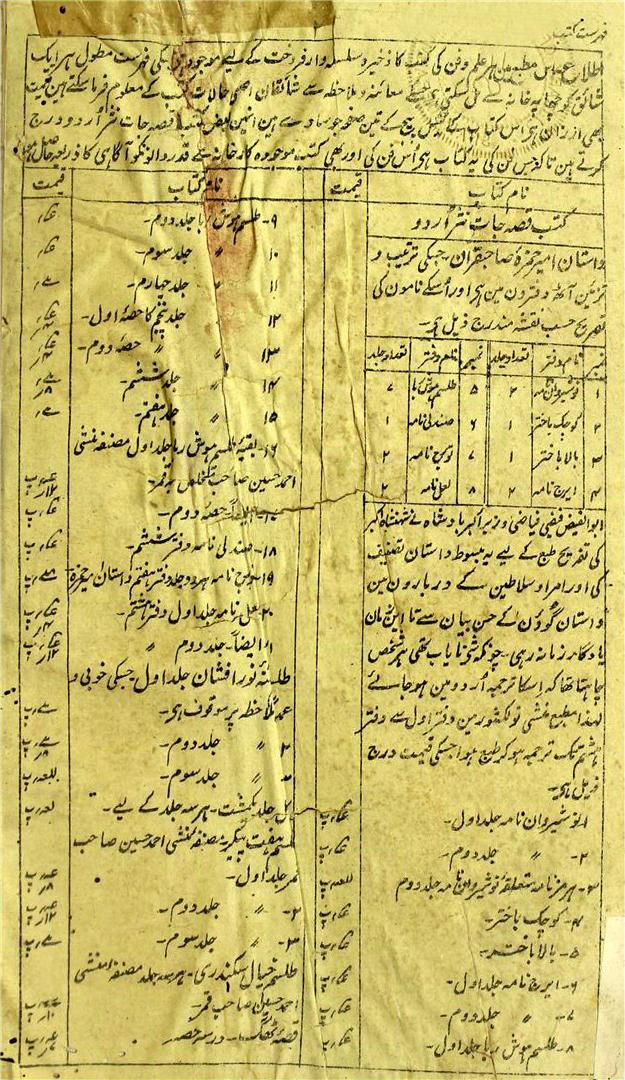 فہرست کتب
اطلاع۔ اس مطبع میں ہر علم و فن کی کتب کا ذخیرہ سلسلہ وار فروخت کے لیے موجود ہے جسکی فہرست مطول ہر ایک
شائق کو چھاپہ خانہ سے مل سکتی ہے جسکے معائنہ و ملاحظہ سے شائقان اصلی حالات کتب کے معلوم فرما سکتے ہین قیمت
بھی ارزان ہے اس کتاب کے ٹیٹل پیج کے تین صفحہ جو سادے ہین انہین بعض کتب قصہ جات نثر اردو درج
کرتے ہین تاکہ جس فن کی یہ کتاب ہے اُس فن کی اور بھی کتب موجودہ کارخانہ سے قدر دانونکو آگاہی کا ذریعہ حاصل ہو
نام کتاب
کتب قصہ جات نثر اُردو
داستان امیر حمزہ صاحبقران۔ جسکی ترتیب و
تزئین آٹھ دفترون مین ہے اور اُسکے نامون کی
تصریح حسب نقشہ مندرج ذیل ہے۔
نمبر نام دفتر تعداد جلد نمبر نام دفتر تعداد جلد
۱ نوشیروان نامہ ۲ ۵ طلسم ہوش ربا ۷
۲ کوچک باختر ۱ ۶ صندلی نامہ ۱
۳ بالا باختر ۱ ۷ تورج نامہ ۲
۴ ایرج نامہ ۲ ۸ لعل نامہ ۲
ابو الفیض فیضی فیاضی وزیر اکبر بادشاہ نے شہنشاہ اکبر
کی تفریح طبع کے لیے یہ مبسوط داستان تصنیف
کی اور امرا و سلاطین کے دربارون مین
داستان گوؤن کے حسن بیان سے تا این زمان
یادگار زمانہ رہی۔ چونکہ شی نایاب تھی ہر شخص
چاہتا تھا کہ اسکا ترجمہ اُردو مین ہو جائے
لہذا مطبع منشی نولکشور مین دفتر اول سے دفتر
ہشتم تک ترجمہ ہو کر طبع ہوا جسکی قیمت درج
ذیل ہے۔
۱۔ نوشیروان نامہ جلد اول۔
۲۔ 〃 جلد دوم۔
۳۔ ہرمز نامہ متعلقہ نوشیروان نامہ جلد دوم
۴۔ کوچک باختر۔
۵۔ بالا باختر۔
۶۔ ایرج نامہ جلد اول۔
۷۔ 〃 جلد دوم۔
۸۔ طلسم ہوش ربا جلد اول۔
قیمت
نام کتاب
قیمت
۹۔ طلسم ہوش ربا جلد دوم۔
۱۰ 〃 جلد سوم۔
۱۱ 〃 جلد چہارم۔
۱۲ جلد پنجم کا حصہ اول۔
۱۳ 〃 〃 حصہ دوم۔
۱۴ 〃 جلد ششم۔
۱۵ 〃 جلد ہفتم۔
۱۶۔ بقیہ طلسم ہوش ربا جلد اول مصنفہ منشی
احمد حسین صاحب متخلص بہ قمر۔
حصہ دوم۔
۱۸۔ صندلی نامہ دفتر ششم۔
۱۹۔ تورج نامہ ہر دو جلد دفتر ہفتم داستان امیر حمزہ
۲۰۔ لعل نامہ جلد اول دفتر ہشتم۔
ایضاً۔ جلد دوم 〃
طلسم نور افشان جلد اول۔ جسکی خوبی و
عمدگی ملاحظہ پر موقوف ہے۔
۲ 〃 جلد دوم۔
〃 جلد سوم۔
کل جلد یکمشت۔ ہر سہ جلد کے لیے۔
طلسم ہفت پیکر۔ مصنفہ منشی احمد حسین صاحب
قمر جلد اول۔
۲۔ 〃 جلد دوم۔
۳۔ 〃 جلد سوم۔
طلسم خیال سکندری۔ ہر سہ جلد مصنفہ منشی
احمد حسین صاحب قمر۔